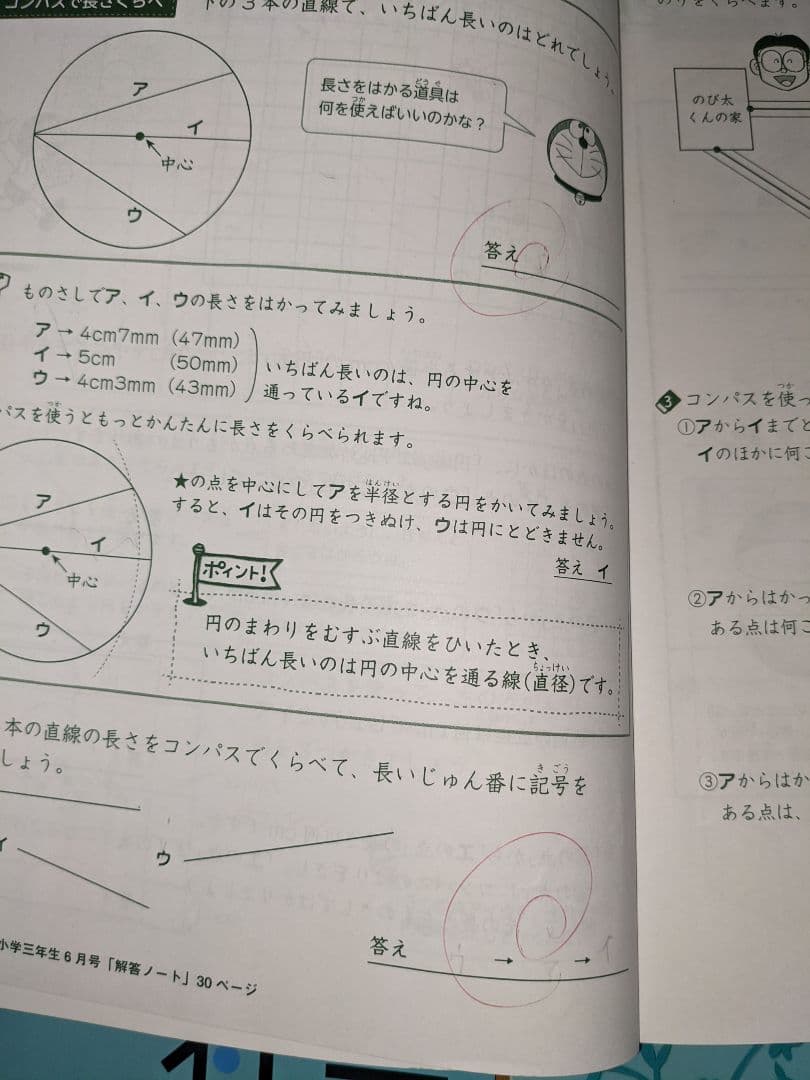 コンパスで長さくらべ
下の3本の直線で、いちばん長いのはどれでしょう。
ア
イ
中心
ウ
長さをはかる道具は
何を使えばいいのかな？
答え
ものさしでア、イ、ウの長さをはかってみましょう。
ア→4cm7mm（47mm）
イ→5cm（50mm）
ウ→4cm3mm（43mm）
いちばん長いのは、円の中心を
通っているイですね。
パスを使うともっとかんたんに長さをくらべられます。
ア
イ
中心
ウ
★の点を中心にしてアを半径とする円をかいてみましょう。
すると、イはその円をつきぬけ、ウは円にとどきません。
答え イ
ポイント！
円のまわりをむすぶ直線をひいたとき、
いちばん長いのは円の中心を通る線（直径）です。
本の直線の長さをコンパスでくらべて、長いじゅん番に記号を
しょう。
イ
ウ
答え ウ → ア → イ
小学三年生6月号「解答ノート」30ページ
のび太
くんの家
3 コンパスを使っ
①アからイまでと
イのほかに何こ
②アからはかっ
ある点は何こ
③アからはか
ある点は、